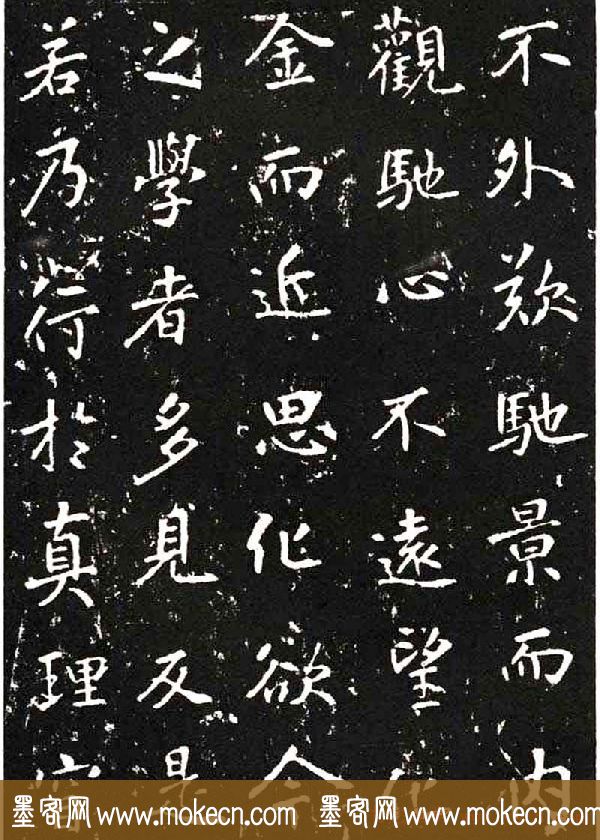 不外欵馳景而内
觀馳心不遠望
金而近思化欲今
之學者多見反是
若乃苻於真理
墨客网 www.mokecn.com 墨客网 www.mokecn.com